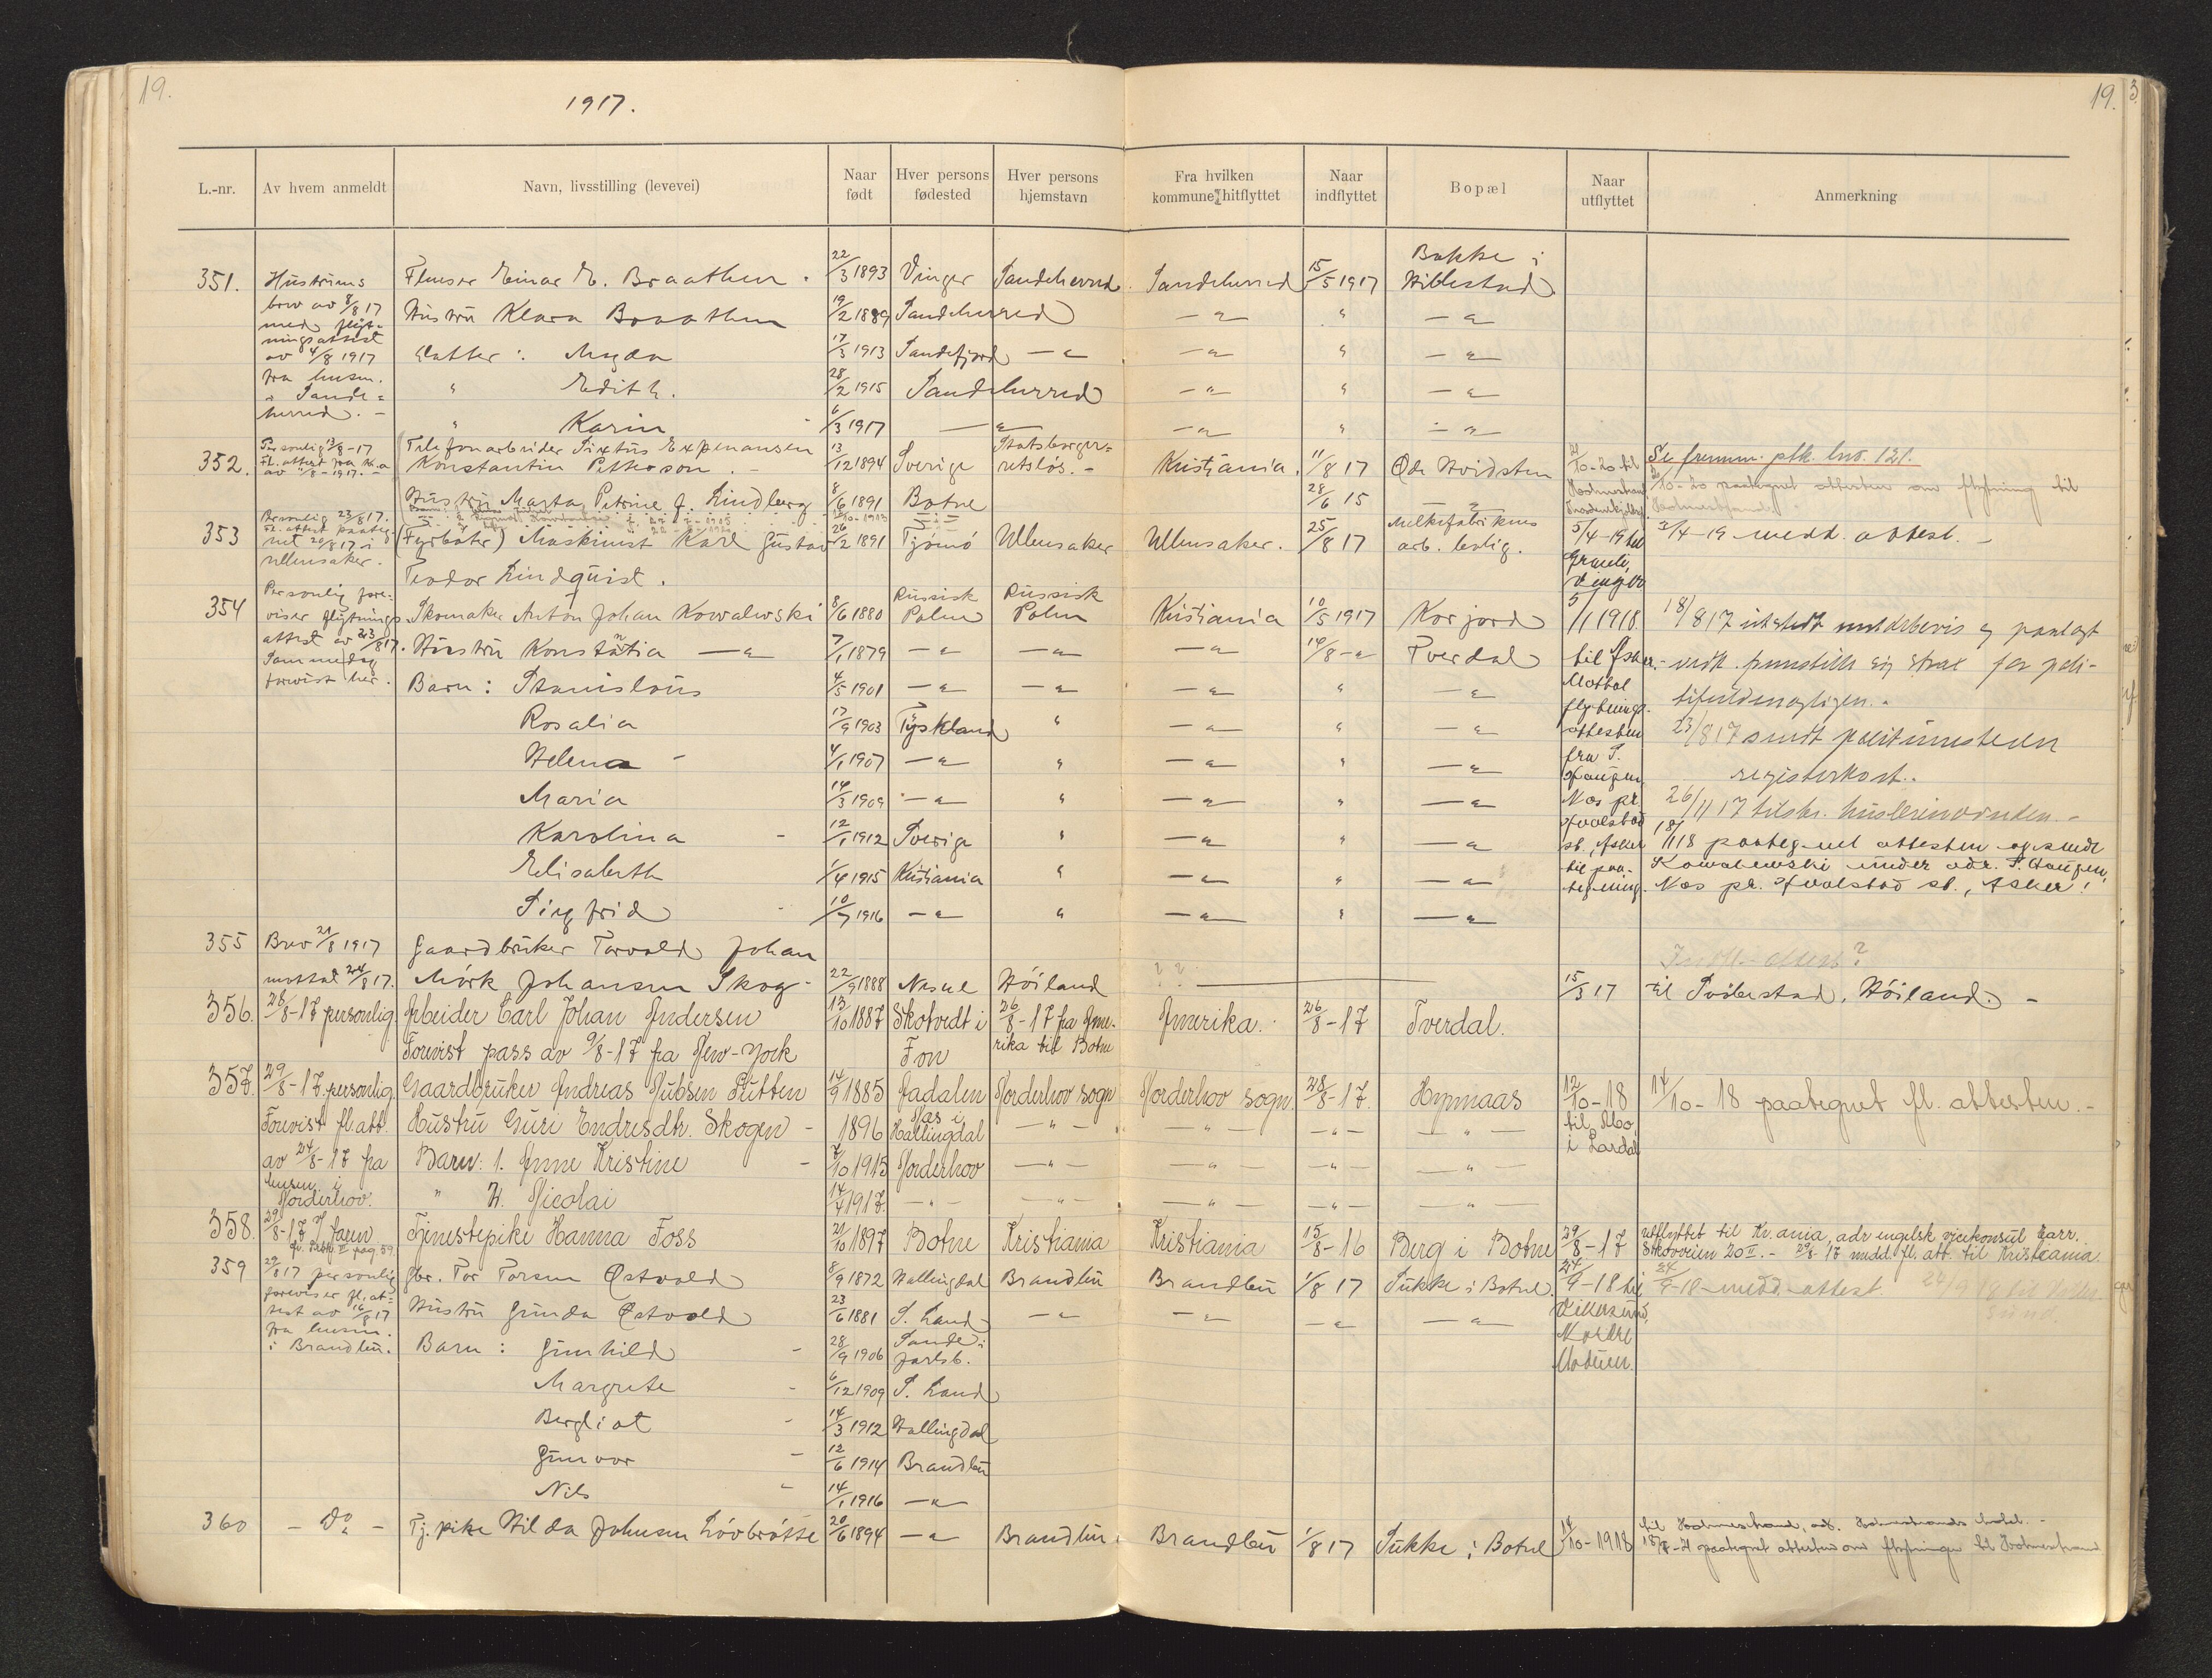 19.
1917.
19.
3
L.-nr. Av hvem anmeldt Navn, livsstilling (levevei) Naar født Hver persons fødested Hver persons hjemstavn Fra hvilken kommune hitflyttet Naar indflyttet Bopæl Naar utflyttet Anmerkning
351. Hustruens Einar E. Braathen 22/3 1893 Vinger Sandeherred Sandeherred 15/5 1917 Bakke i Hillestad
brev av 8/8 17 Hustru Klara Braathen 19/2 1889 Sandeherred —"— " —"—
med flyt-
ningsattest
av 4/8 1917 Datter: Magda 17/3 1913 Sandefjord —"— —"— " —"—
fra husm.
i Sande= " Edith. 28/2 1915 Sandeherred —"— " —"—
herred. - " Karin 6/3 1917 —"— —"— " —"—
352. Personlig 13/8-17 Telefonarbeider Sixtus Konstantin Petterson. - 13/12 1894 Sverige Statsborger=retsløs. - Kristiania. 11/8 17 Ødr Hvidsten Se fremm. ptk. lnr. 121.
Hustru Marta Petrine f. Lindberg 8/6 1891 Botne 28/6 15 —"— 10-20 paategnet attesten om flytning til Holmestrand.
353 Personlig 23/8 17. (Fyrbøter) Maskinist Karl Gustav 26/2 1891 Tjømø Ullensaker Ullensaker. 25/8 17 Melkefabrikens arb. bolig. 5/4-19 til 2/4-19 medd. attest. -
Fl. attest paateg-
net 20/8 17 i
Ullensaker. Teodor Lindquist. Vinger
354 Personlig fore- Skomaker Anton Johan Kowalewski 8/6 1880 Russisk Polen Russisk Polen Kristiania 10/5 1917 Korjord 5/1 1918 18/8 17 utstedt meldebevis og paalagt
viser flytnings-
attest av 23/8 17. Hustru Konstantia —"— 7/1 1879 —"— —"— —"— 14/8-" Tverdal til Asker.- vedk. fremstille sig strax for poli-
Sammedag
forvist her. Barn: Stanislaus 4/5 1901 —"— —"— —"— " —"— Mottat tifuldmægtigen. -
Rosalia 17/9 1903 Tyskland " —"— " —"— flytnings-attesten 23/8 17 sendt politimesteren
Helena 4/1 1907 —"— " —"— " —"— fra S. Haugen registerkort..
Maria 14/3 1909 —"— " —"— " —"— Nes pr. 26/11 17 tilskr. husleienævnden. -
Karolina 12/1 1912 Sverige " —"— " —"— Hvalstad st., Asker 18/1 18 paategnet attesten og sendt
Elisabeth 1/4 1915 Kristiania " —"— " —"— til paa-tegning. Kowalewski under adr. S. Haugen,
Nes pr. Hvalstad st., Asker!
Sigfrid 10/7 1916 —"— " —"— " —"—
355 Brev 21/8 1917 Gaardbruker Torvald Johan
mottat 24/8 17. Mørk Johansen Skog - 22/9 1888 Nesne Høiland ? ? 15/3 17 til Høiland. -
356. 28/8-17 personlig. Arbeider Carl Johan Andersen 13/10 1887 Skotvedt i Fon 26/8-17 fra Ame-rika til Botne Amerika. 26/8-17 Tverdal.
Forevist pass av 9/8-17 fra New-York
357. 29/8-17. personlig. Gaardbruker Andreas Nubsen Sutten 14/9 1885 Aadalen Norderhov sogn Norderhov sogn. 28/8-17. Hynnaas 12/10-18 14/10-18 paategnet fl. attesten. -
Forevist fl. att. Hustru Guri Endresdtr. Skogen - 1896 Nas i Hallingdal —"— —"— —"— —"— til Mo
av 24/8-17 fra Barn: 1. Anne Kristine - 7/10 1915 Norderhov —"— —"— —"— —"— i Lardal
husm. i
Norderhov. " II. Nicolai 14/4 1917. —"— —"— —"— —"— —"—
358. 29/8-17 af faren Tjenestepike Hanna Foss 21/10 1897 Botne Kristiania Kristiania 15/8-16 Berg i Botne 29/8-17 utflyttet til Kr.ania, adr engelsk vicekonsul Carr.
Skovveien 20 II. - 29/8-17 medd. fl. att. til Kristiania
359 29/8 17 personlig gbr. Tor Torsen Østvold 8/9 1872 Hallingdal Brandbu Brandbu 1/8 17 Sukke i Botne. 24/9-18 til 24/9-18 medd. attest.
foreviser fl. at-
test av 16/8 17 Hustru Gunda Østvold 23/6 1881 S. Land —"— —"— —"— —"— Vikersund,
fra husm.
i Brandbu. Barn: Gunhild - 28/9 1906 Sande i Jarlsb. Nordre Modum.
Margrete - 6/12 1909 S. Land
Bergliot - 14/3 1912 Hallingdal
Gunvor - 12/6 1914 Brandbu
Nils - 14/1 1916 —"—
360 - Do - Tj. pike Hilda Johnsen Løvbråtte 20/6 1894 —"— Brandbu Brandbu 1/8 17 Sukke i Botne 14/10-1918 til Holmestrand, adr. Holmestrands hotel. -
paategnet attesten om flytningen til Holmestrand